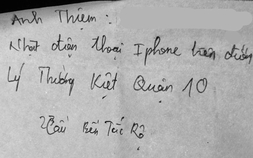 Anh Thiệm :
Nhặt điện thoại Iphone trên đường
Lý Thường Kiệt Quận 10
Bến Tóc Rộ